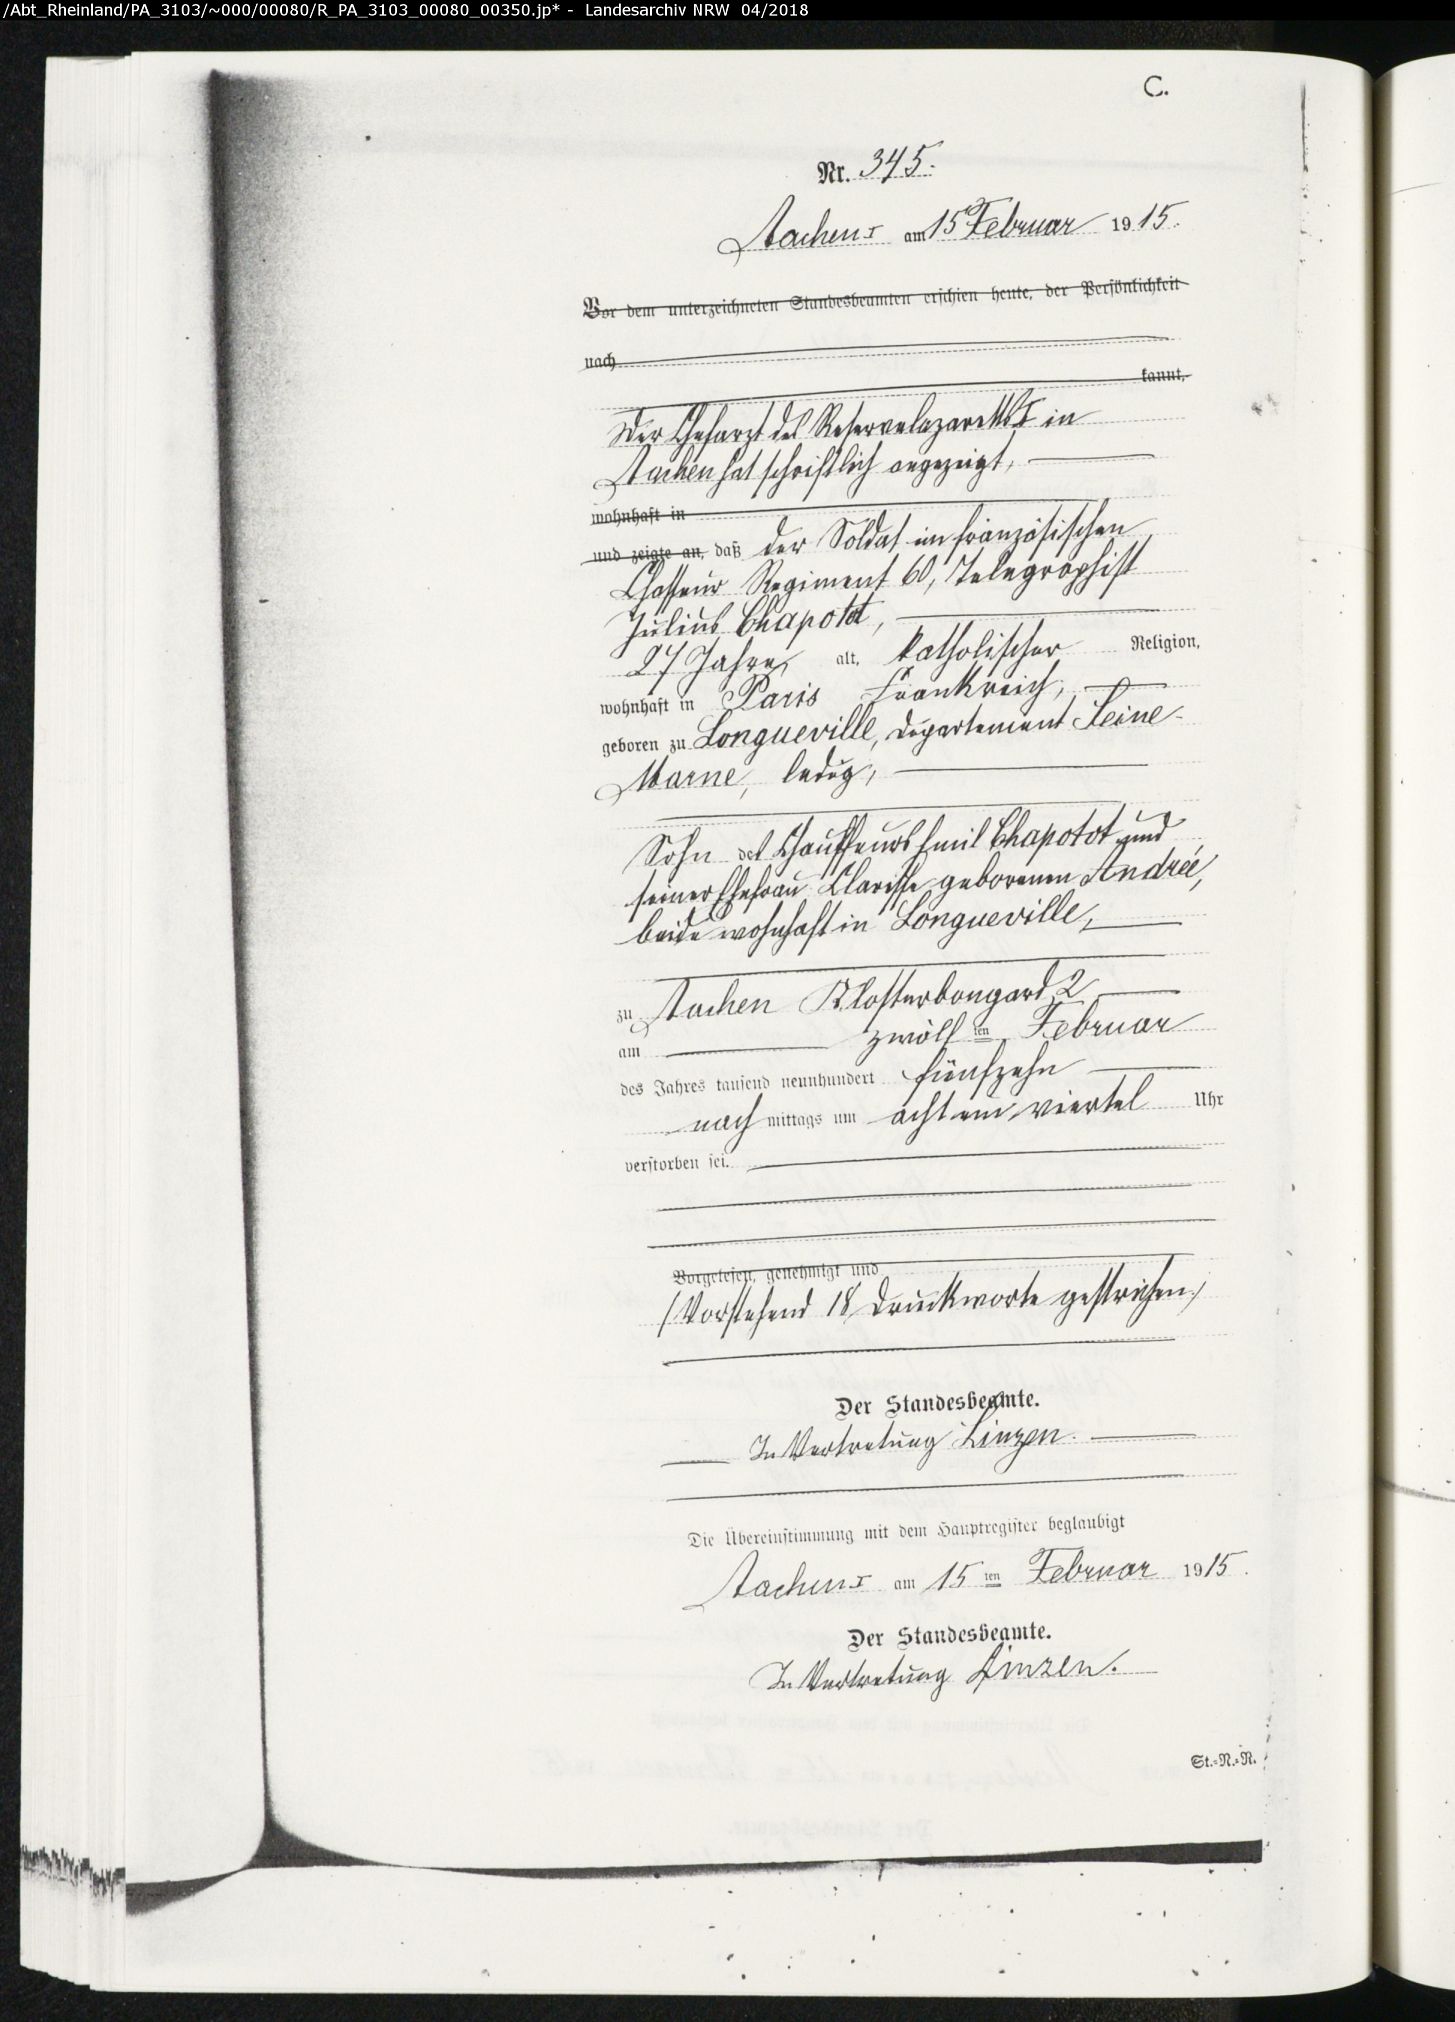 /Abt_Rheinland/PA_3103/~000/00080/R_PA_3103_00080_00350.jp* - Landesarchiv NRW 04/2018
C.
Nr. 345.
Aachen I am 15 Februar 1915.
Vor dem unterzeichneten Standesbeamten erschien heute, der Persönlichkeit
nach
kannt,
Der Chefarzt des Reservelazaretts I in
Aachen hat schriftlich angezeigt,
wohnhaft in
und zeigte an, daß der Soldat im französischen
Chasseur Regiment 60, Telegraphist
Julius Chapotot,
27 Jahre alt, katholischer Religion,
wohnhaft in Paris Frankreich,
geboren zu Longueville, Departement Seine-
Marne, ledig,
Sohn des Chauffeurs Emil Chapotot und
seiner Ehefrau Clarisse geborenen Andreé,
beide wohnhaft in Longueville,
zu Aachen Klosterbongard 2
am zwölf ten Februar
des Jahres tausend neunhundert fünfzehn
nach mittags um acht ein viertel Uhr
verstorben sei.
Vorgelesen, genehmigt und
(Vorstehend 18 Druckworte gestrichen.)
Der Standesbeamte.
In Vertretung Linzen.
Die Übereinstimmung mit dem Hauptregister beglaubigt
Aachen I am 15 ten Februar 1915.
Der Standesbeamte.
In Vertretung Linzen.
St.=N.=N.